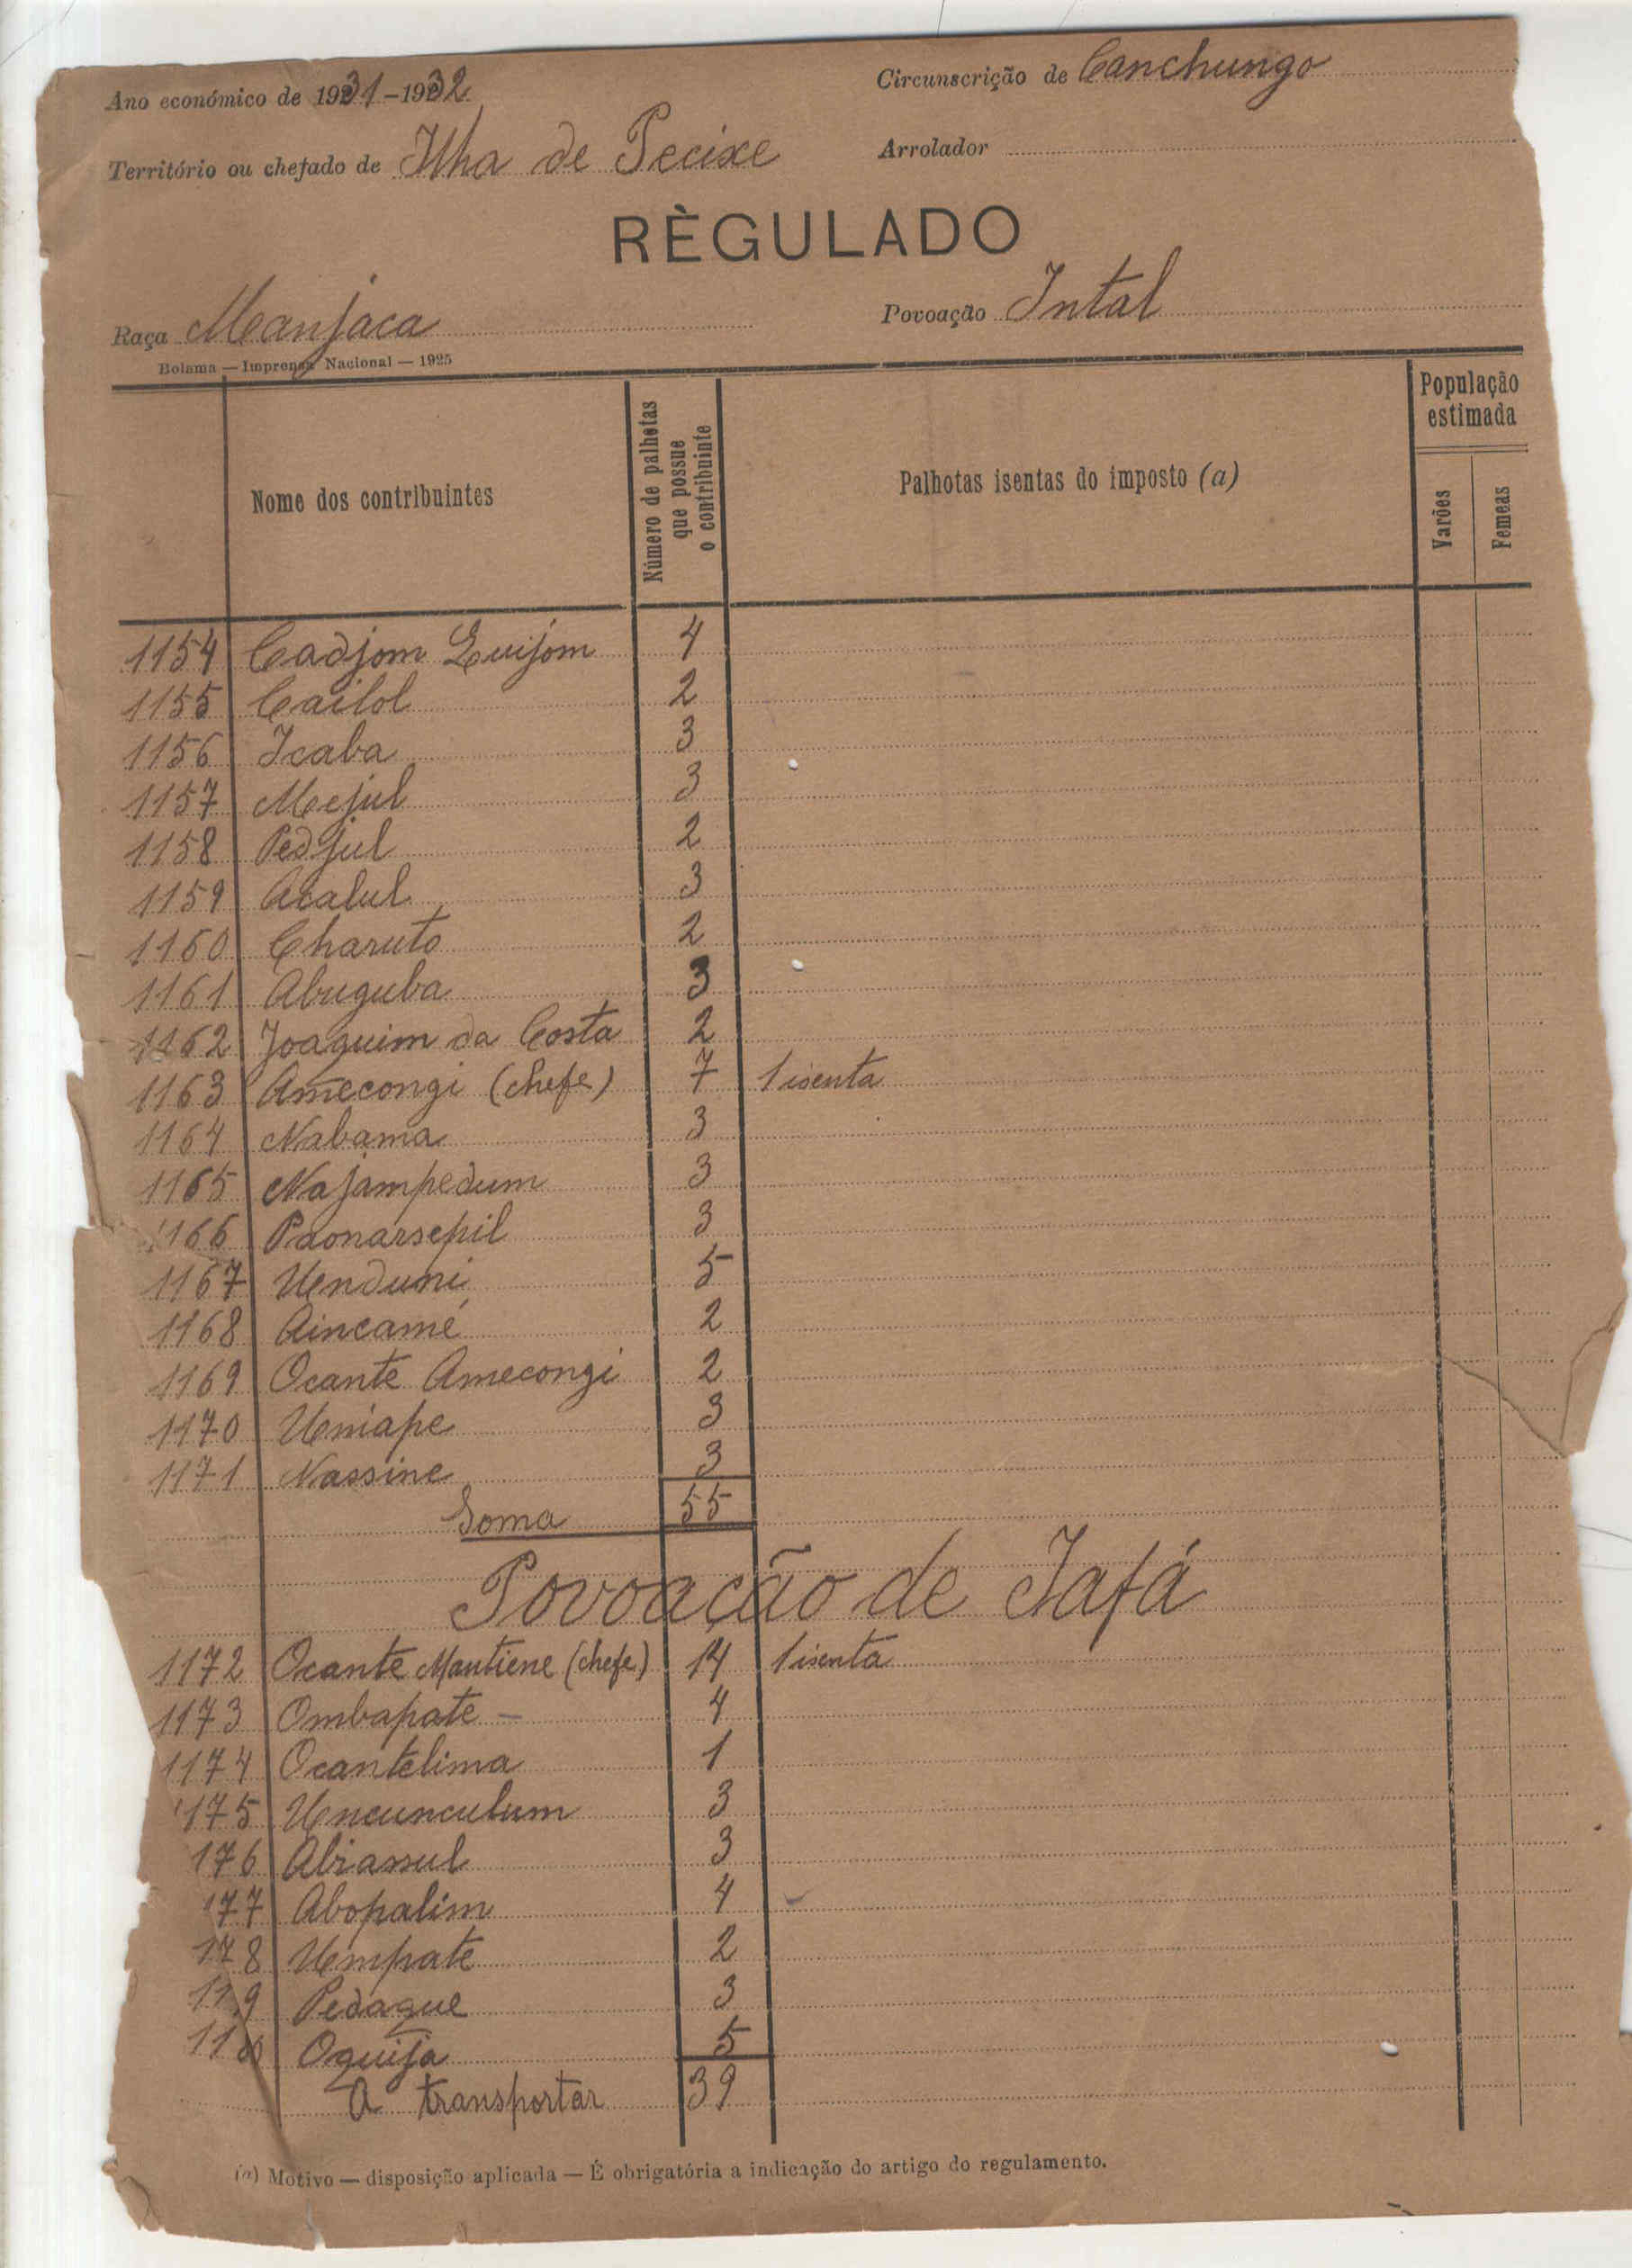 Ano económico de 1931-1932
Circunscrição de Canchungo
Território ou chefado de Ilha de Pecixe
Arrolador
RÈGULADO
Raça Manjaca
Povoação Intal
Bolama — Imprensa Nacional — 1925
Nome dos contribuintes
Número de palhotas que possue o contribuinte
Palhotas isentas do imposto (a)
População estimada
Varões
Femeas
1154 Cadjom Luijom 4
1155 Cailol 2
1156 Icaba 3
1157 Mejul 3
1158 Pedjul 2
1159 Acalul 3
1160 Charuto 2
1161 Abuguba 3
1162 Joaquim da Costa 2
1163 Amecongi (chefe) 7 1 isenta
1164 Nabama 3
1165 Najampedum 3
1166 Paonarsepil 3
1167 Uenduni 5
1168 Aincamé 2
1169 Ocante Amecongi 2
1170 Uniape 3
1171 Nassine 3
Soma 55
Povoação de Jafá
1172 Ocante Mantiene (chefe) 14 1 isenta
1173 Ombapate 4
1174 Ocantelima 1
1175 Uncunculum 3
176 Abiansul 3
177 Abopalim 4
178 Uempate 2
119 Pedaque 3
118 Oquija 5
A transportar 39
(a) Motivo — disposição aplicada — É obrigatória a indicação do artigo do regulamento.